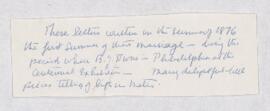 These letters written in the Summer of 1876
the first Summer of their marriage — during the
period when B. was in Philadelphia at the
Centennial Exhibition — many delightful little
pieces telling of life in